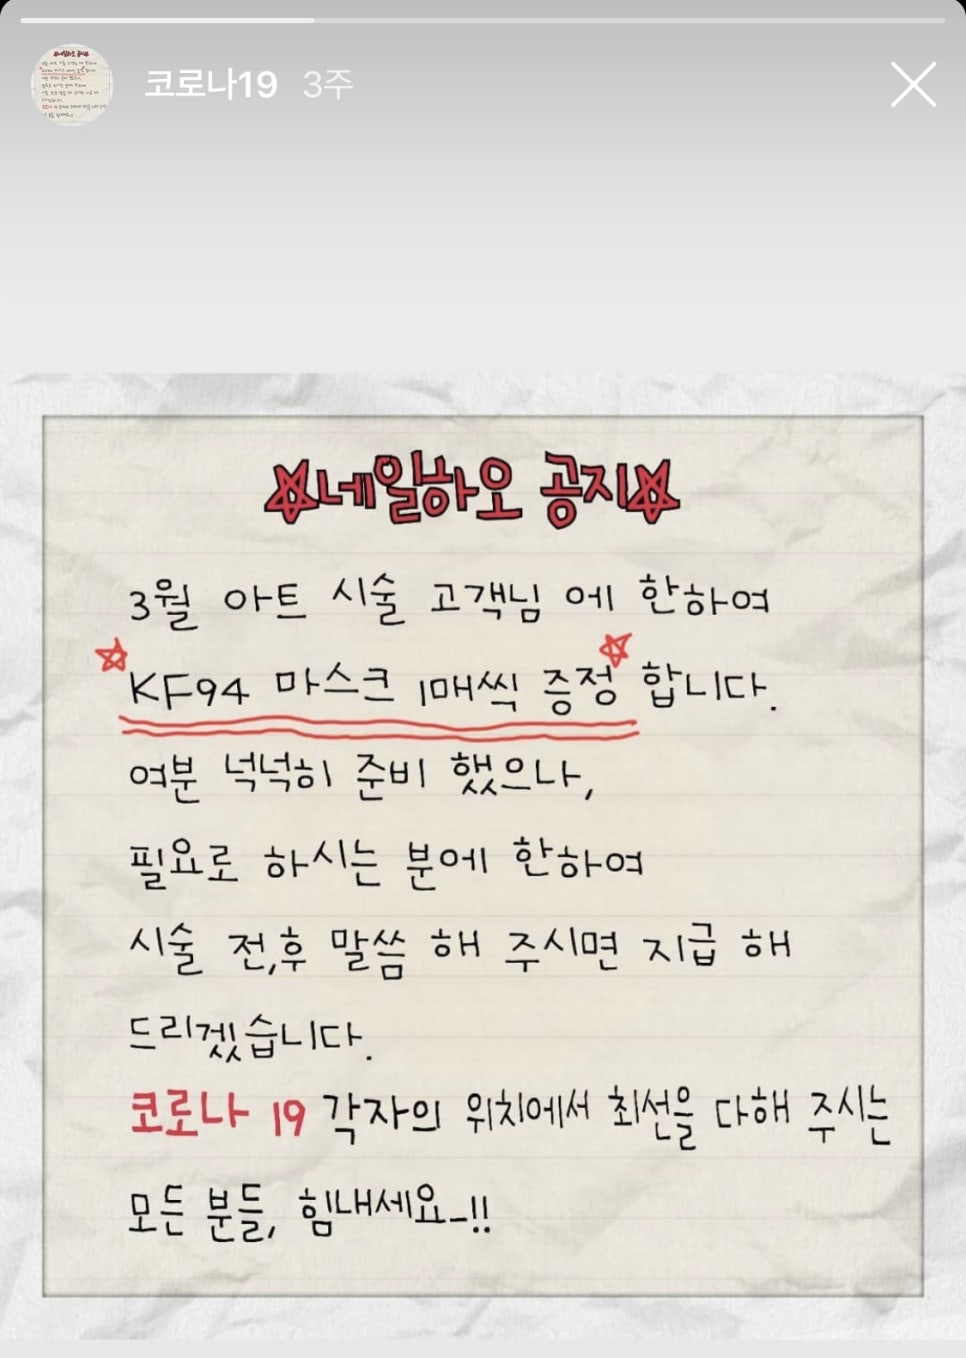 코로나19 3주
네일하오 공지
3월 아트 시술 고객님 에 한하여
KF94 마스크 1매씩 증정 합니다.
여분 넉넉히 준비 했으나,
필요로 하시는 분에 한하여
시술 전,후 말씀 해 주시면 지급 해
드리겠습니다.
코로나 19 각자의 위치에서 최선을 다해 주시는
모든 분들, 힘내세요-!!